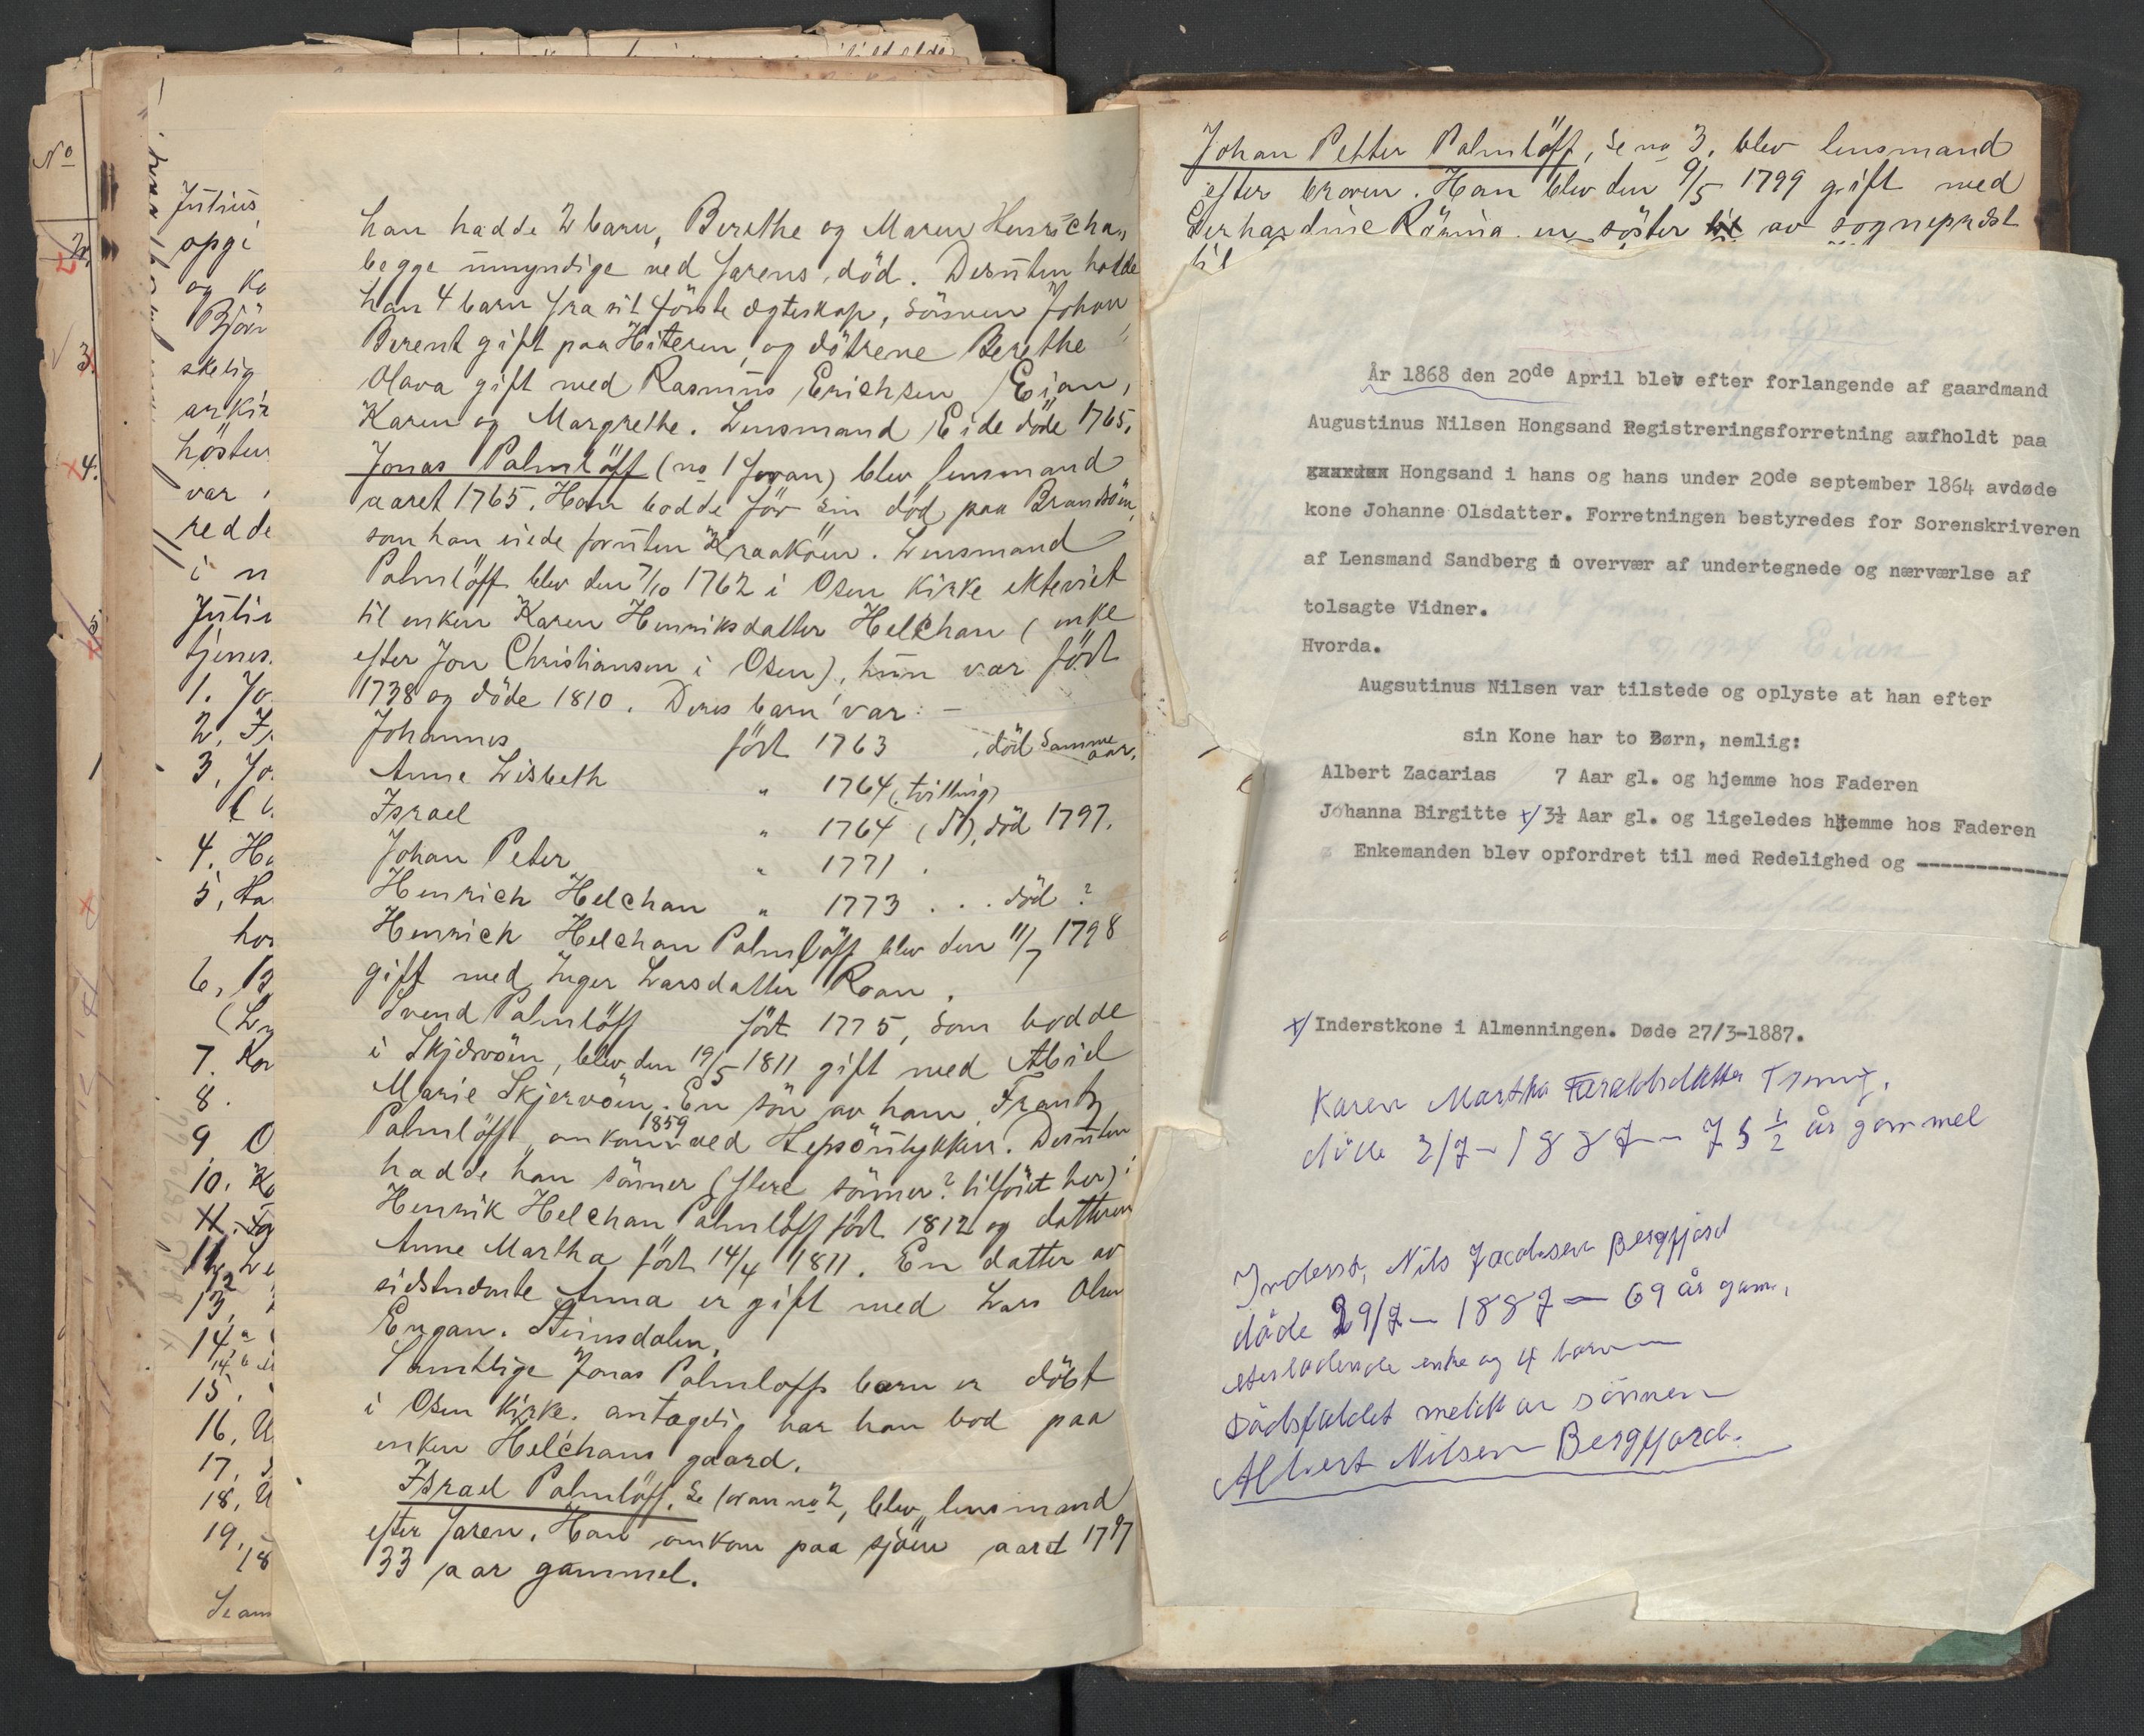 No
2.
3.
4.
5
Julius
opgi
og ko
Björ
skelig
arkiv
hösten
var
redde
i
Juli
tjenes
1. Jo
2,
3, Jo
4. Ha
5, Ha
hos
6,
7. Kar
8.
9, O
10. K
13,
14 a
14 b
15.
16, U
17,
18, U
19,
18
han hadde 2 barn, Berethe og Maren Henricha,
begge umyndige ved farens död. Desuten hadde
han 4 barn fra sit förste egteskap, sönnen Johan
Berent gift paa Hiteren, og dötrene Berethe
Olava gift med Rasmus Erichsen Eian,
Karen og Margrethe. Lensmand Eide döde 1765.
Jonas Palmlöff (no 1 foran) blev lensmand
aaret 1765. Han bodde för sin död paa Brandsöen,
som han eiede foruten Kraaköen. Lensmand
Palmlöff blev den 7/10 1762 i Osen kirke ekteviet
til enken Karen Henriksdatter Helchan (enke
efter Jon Christiansen i Osen), hun var född
1738 og döde 1810. Deres barn var: -
Johannes född 1763 , död samme aar.
Anne Lisbeth " 1764 (tvilling)
Israel " 1764 (do), död 1797.
Johan Peter " 1771 .
Henrich Helchan " 1773 . . . död ?
Henrich Helchan Palmlöff blev den 11/7 1798
gift med Inger Larsdatter Roan.
Svend Palmlöff född 1775, som bodde
i Skjervöen, blev den 19/5 1811 gift med Abiel
Marie Skjervöen. En sön av ham, Frantz
Palmlöff, omkom 1859 ved Hepsöulykken. Desuten
hadde han sönner (flere sönner? tilföiet her) :
Henrik Helchan Palmlöff född 1812 og datteren
Anne Martha född 14/4 1811. En datter av
sidstnevnte Anna er gift med Lars Olsen
Engan. Steinsdalen.
Samtlige Jonas Palmloffs barn er döbt
i Osen kirke. antagelig har han bod paa
enken Helchans gaard.
Israel Palmlöff, se foran no 2, blev lensmand
efter faren. Han omkom paa sjöen aaret 1797
33 aar gammel.
Johan Petter Palmlöff, se no 3, blev lensmand
efter broren. Han blev den 9/5 1799 gift med
Gerhardine Römina en söster til av sogneprest
til
År 1868 den 20de April blev efter forlangende af gaardmand
Augustinus Nilsen Hongsand Registreringsforretning aufholdt paa
gaarden Hongsand i hans og hans under 20de september 1864 avdøde
kone Johanne Olsdatter. Forretningen bestyredes for Sorenskriveren
af Lensmand Sandberg i overvær af undertegnede og nærværlse af
tolsagte Vidner.
Hvorda.
Augsutinus Nilsen var tilstede og oplyste at han efter
sin Kone har to Børn, nemlig:
Albert Zacarias 7 Aar gl. og hjemme hos Faderen
Johanna Birgitte x/ 3½ Aar gl. og ligeledes hjemme hos Faderen
Enkemanden blev opfordret til med Redelighed og ----------------
x/ Inderstkone i Almenningen. Døde 27/3-1887.
Karen Martha
döde 3/7-1887 - 75 1/2 år gammel
Inderst, Nils Jacobsen Bergfjord
döde 29/7 - 1887 - 69 år gam.
efterladende enke og 4 barn
Dödsfaldet meldt av sönnen
Albert Nilsen Bergfjord.